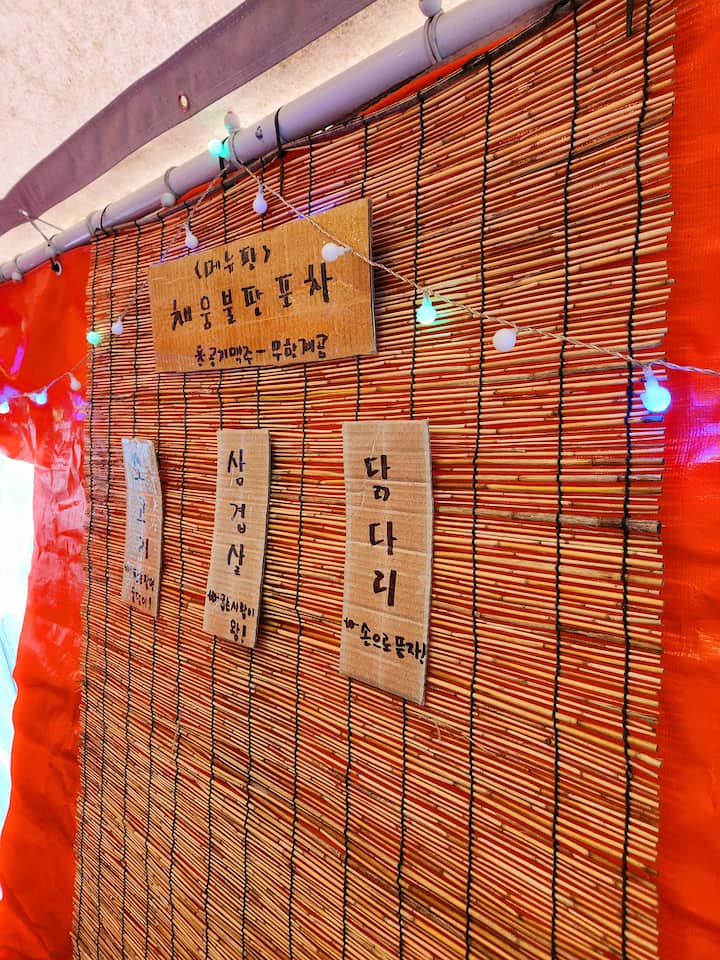 <메뉴판>
채움불판포차
총공기맥주-무한제공
소고기
삼겹살
굽는사람이
왕!
닭다리
손으로뜯자!